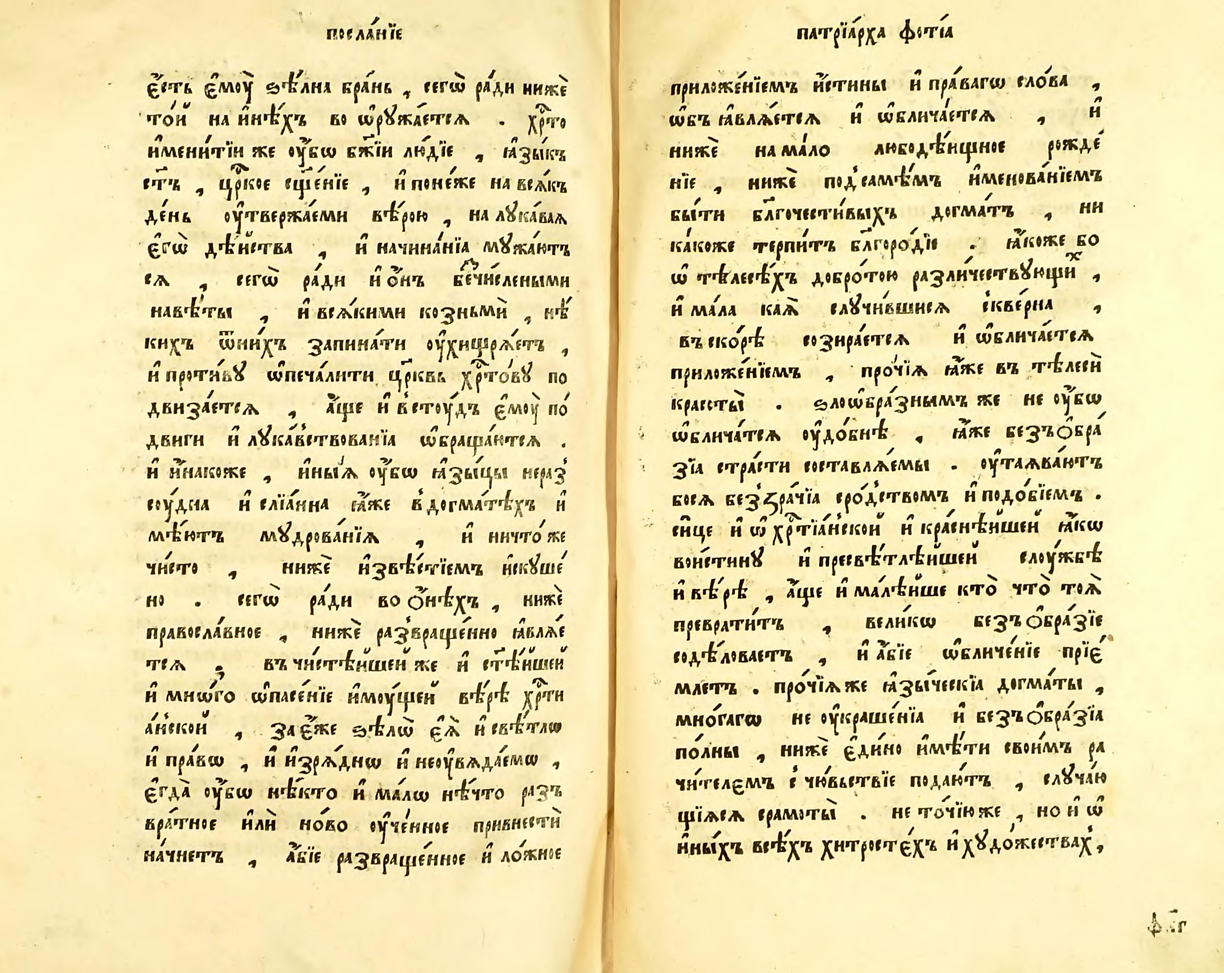 посла́нїе
є҆́сть є҆моу̀ ѕѣ́лна бра́нь , сегѡ̀ ра́ди нижѐ
то́й на и҆нѣ́хъ во ѡ҆ружа́етсѧ . хрⷭ҇то
и҆мени́тїи же оу҆́бѡ бж҃їи лю́дїе , ꙗ҆зы́къ
ст҃ъ , црⷭ҇кое сщ҃е́нїе , и҆ поне́же на всѧ́къ
де́нь оу҆твержа́еми вѣ́рою , на лука́ваѧ
є҆гѡ̀ дѣ́йства , и҆ начина́нїа мꙋжа́ютъ
сѧ , сегѡ̀ ра́ди и҆ ѻ҆́нъ беⷥчи́слеными
навѣ́ты , и҆ всѧ́кими ко́зньми , нѣ́
кихъ ѿ ни́хъ запина́ти оу҆хищрѧ́етъ ,
и҆ проти́вꙋ ѡ҆печа́лити цр҃ковь хрⷭ҇то́вꙋ по
двиза́етсѧ , а҆́ще и҆ в̾стоу́дъ є҆моу̀ по́
двиги и҆ лꙋка́вствованїа ѡ҆браща́ютсѧ .
и҆ и҆на́коже , и҆ны́ѧ оу҆́бѡ ꙗ҆зы́цы нераз̾
соу́дна и҆ слїа́нна ꙗ҆́же в̾ догма́тѣхъ и҆
мѣ́ютъ мꙋдрова́нїѧ , и҆ ничто́же
чи́сто , нижѐ и҆звѣ́стїемъ и҆скꙋше́
но . сегѡ̀ ра́ди во ѻ҆́нѣхъ , нижѐ
правосла́вное , нижѐ развраще́нно ꙗ҆влѧ́е
тсѧ , въ чистѣ́йшей же и҆ ст҃ѣ́йшей
и҆ мнѡ́го ѡ҆пасе́нїе и҆моу́щей вѣ́рѣ хрⷭ҇ти
а́нской , за є҆́же ѕѣлѡ̀ є҆ѧ̀ и҆ свѣ́тлѡ
и҆ пра́вѡ , и҆ и҆зрѧ́днѡ и҆ неоувѧда́емѡ ,
є҆гда̀ оу҆́бѡ нѣ́кто и҆ ма́лѡ нѣ́что раз̾
вра́тное и҆лѝ но́во оу҆че́нное привнестѝ
на́чнетъ , а҆́бїе развраще́нное и҆ ло́жное
патрїа́рха фо́тїа
приложе́нїемъ и҆́стины и҆ пра́вагѡ сло́ва ,
ѡ҆бъ ꙗ҆влѧ́етсѧ и҆ ѡ҆блича́етсѧ , и҆
нижѐ на ма́ло любодѣ́ищное рожде́
нїе , нижѐ под̾ самѣ́мъ и҆менова́нїемъ
бы́ти бл҃гочести́выхъ догма́тъ , ни
ка́коже те́рпитъ бл҃горо́дїе . ꙗ҆́коже бо
ѡ҆ тѣлесѣ́хъ добро́тою разли́чествꙋющиⷯ ,
и҆ ма́ла каѧ̀ слꙋчи́вшиесѧ скве́рна ,
въ ско́рѣ созира́етсѧ и҆ ѡ҆блича́етсѧ
приложе́нїемъ , про́чїѧ ꙗ҆́же въ тѣлесѝ
красоты̀ . ѕлоѡ҆бра́знымъ же не оу҆́бѡ
ѡ҆блича́тсѧ оу҆до́бнѣ , ꙗ҆́же безъѻ҆бра́
зїа стра́сти составлѧ́емы . оу҆таѧва́ютъ
босѧ беззра́чїа сро́дствомъ и҆ подо́бїемъ .
си́це и҆ ѡ҆ хрⷭ҇тїа́нской и҆ краснѣ́йшей ꙗ҆́кѡ
вои́стинꙋ и҆ пресвѣтлѣ́йшей слоу́жбѣ
и҆ вѣ́рѣ , а҆́ще и҆ малѣ́йше кто̀ что̀ тоѧ̀
преврати́тъ , вели́кѡ безъѻ҆бра́зїе
содѣ́ловаетъ , и҆ а҆́бїе ѡ҆бличе́нїе прїе́
млетъ . про́чїѧ же ꙗ҆зы́ческїа догма́ты ,
мно́гагѡ не оу҆краше́нїа и҆ безъѻ҆бра́зїа
по́лны , нижѐ є҆ди́но и҆мѣ́ти свои́мъ ра
чи́телємъ с̾ чю́вьствїе подаю́тъ , слꙋча́ю
щїѧсѧ срамоты̀ . не то́чїю же , но и҆ ѡ҆
и҆ны́хъ всѣ́хъ хи́тростєхъ и҆ хꙋдо́жествах̾ ,